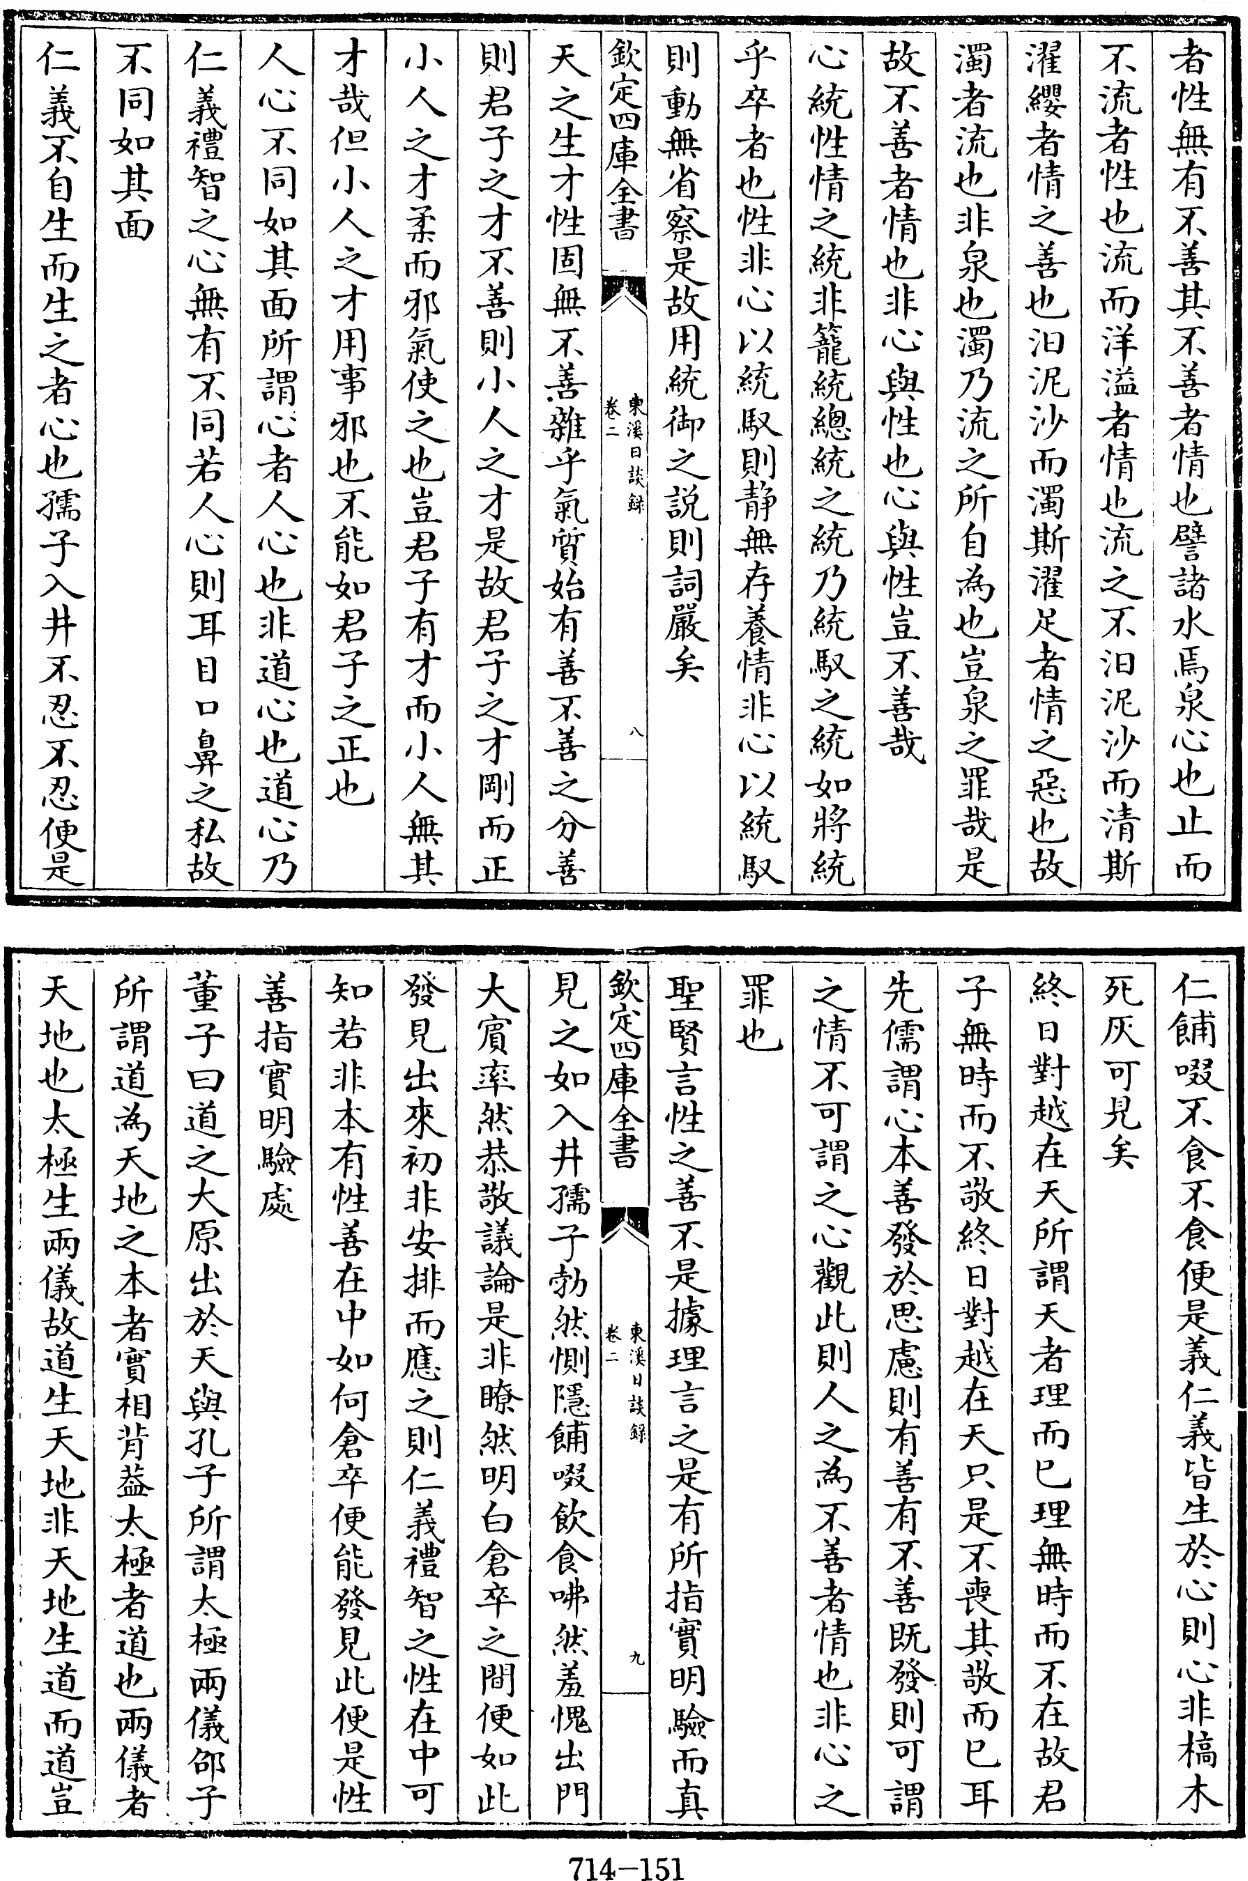 者性無有不善其不善者情也譬諸水焉泉心也止而
不流者性也流而洋溢者情也流之不汩泥沙而清斯
濯纓者情之善也汩泥沙而濁斯濯足者情之惡也故
濁者流也非泉也濁乃流之所自為也豈泉之罪哉是
故不善者情也非心與性也心與性豈不善哉
心統性情之統非籠統總統之統乃統馭之統如將統
乎卒者也性非心以統馭則静無存養情非心以統馭
則動無省察是故用統御之說則詞嚴矣
欽定四庫全書
東溪日談録
卷二
八
天之生才性固無不善雜乎氣質始有善不善之分善
則君子之才不善則小人之才是故君子之才剛而正
小人之才柔而邪氣使之也豈君子有才而小人無其
才哉但小人之才用事邪也不能如君子之正也
人心不同如其面所謂心者人心也非道心也道心乃
仁義禮智之心無有不同若人心則耳目口鼻之私故
不同如其面
仁義不自生而生之者心也孺子入井不忍不忍便是
仁餔啜不食不食便是義仁義皆生於心則心非槁木
死灰可見矣
終日對越在天所謂天者理而已理無時而不在故君
子無時而不敬終日對越在天只是不喪其敬而已耳
先儒謂心本善發於思慮則有善有不善既發則可謂
之情不可謂之心觀此則人之為不善者情也非心之
罪也
聖賢言性之善不是據理言之是有所指實明驗而真
欽定四庫全書
東溪日談録
卷二
九
見之如入井孺子勃然惻隱餔啜飲食咈然羞愧出門
大賔率然恭敬議論是非瞭然明白倉卒之間便如此
發見出來初非安排而應之則仁義禮智之性在中可
知若非本有性善在中如何倉卒便能發見此便是性
善指實明驗處
董子曰道之大原出於天與孔子所謂太極兩儀邵子
所謂道為天地之本者實相背葢太極者道也兩儀者
天地也太極生兩儀故道生天地非天地生道而道豈
714-151